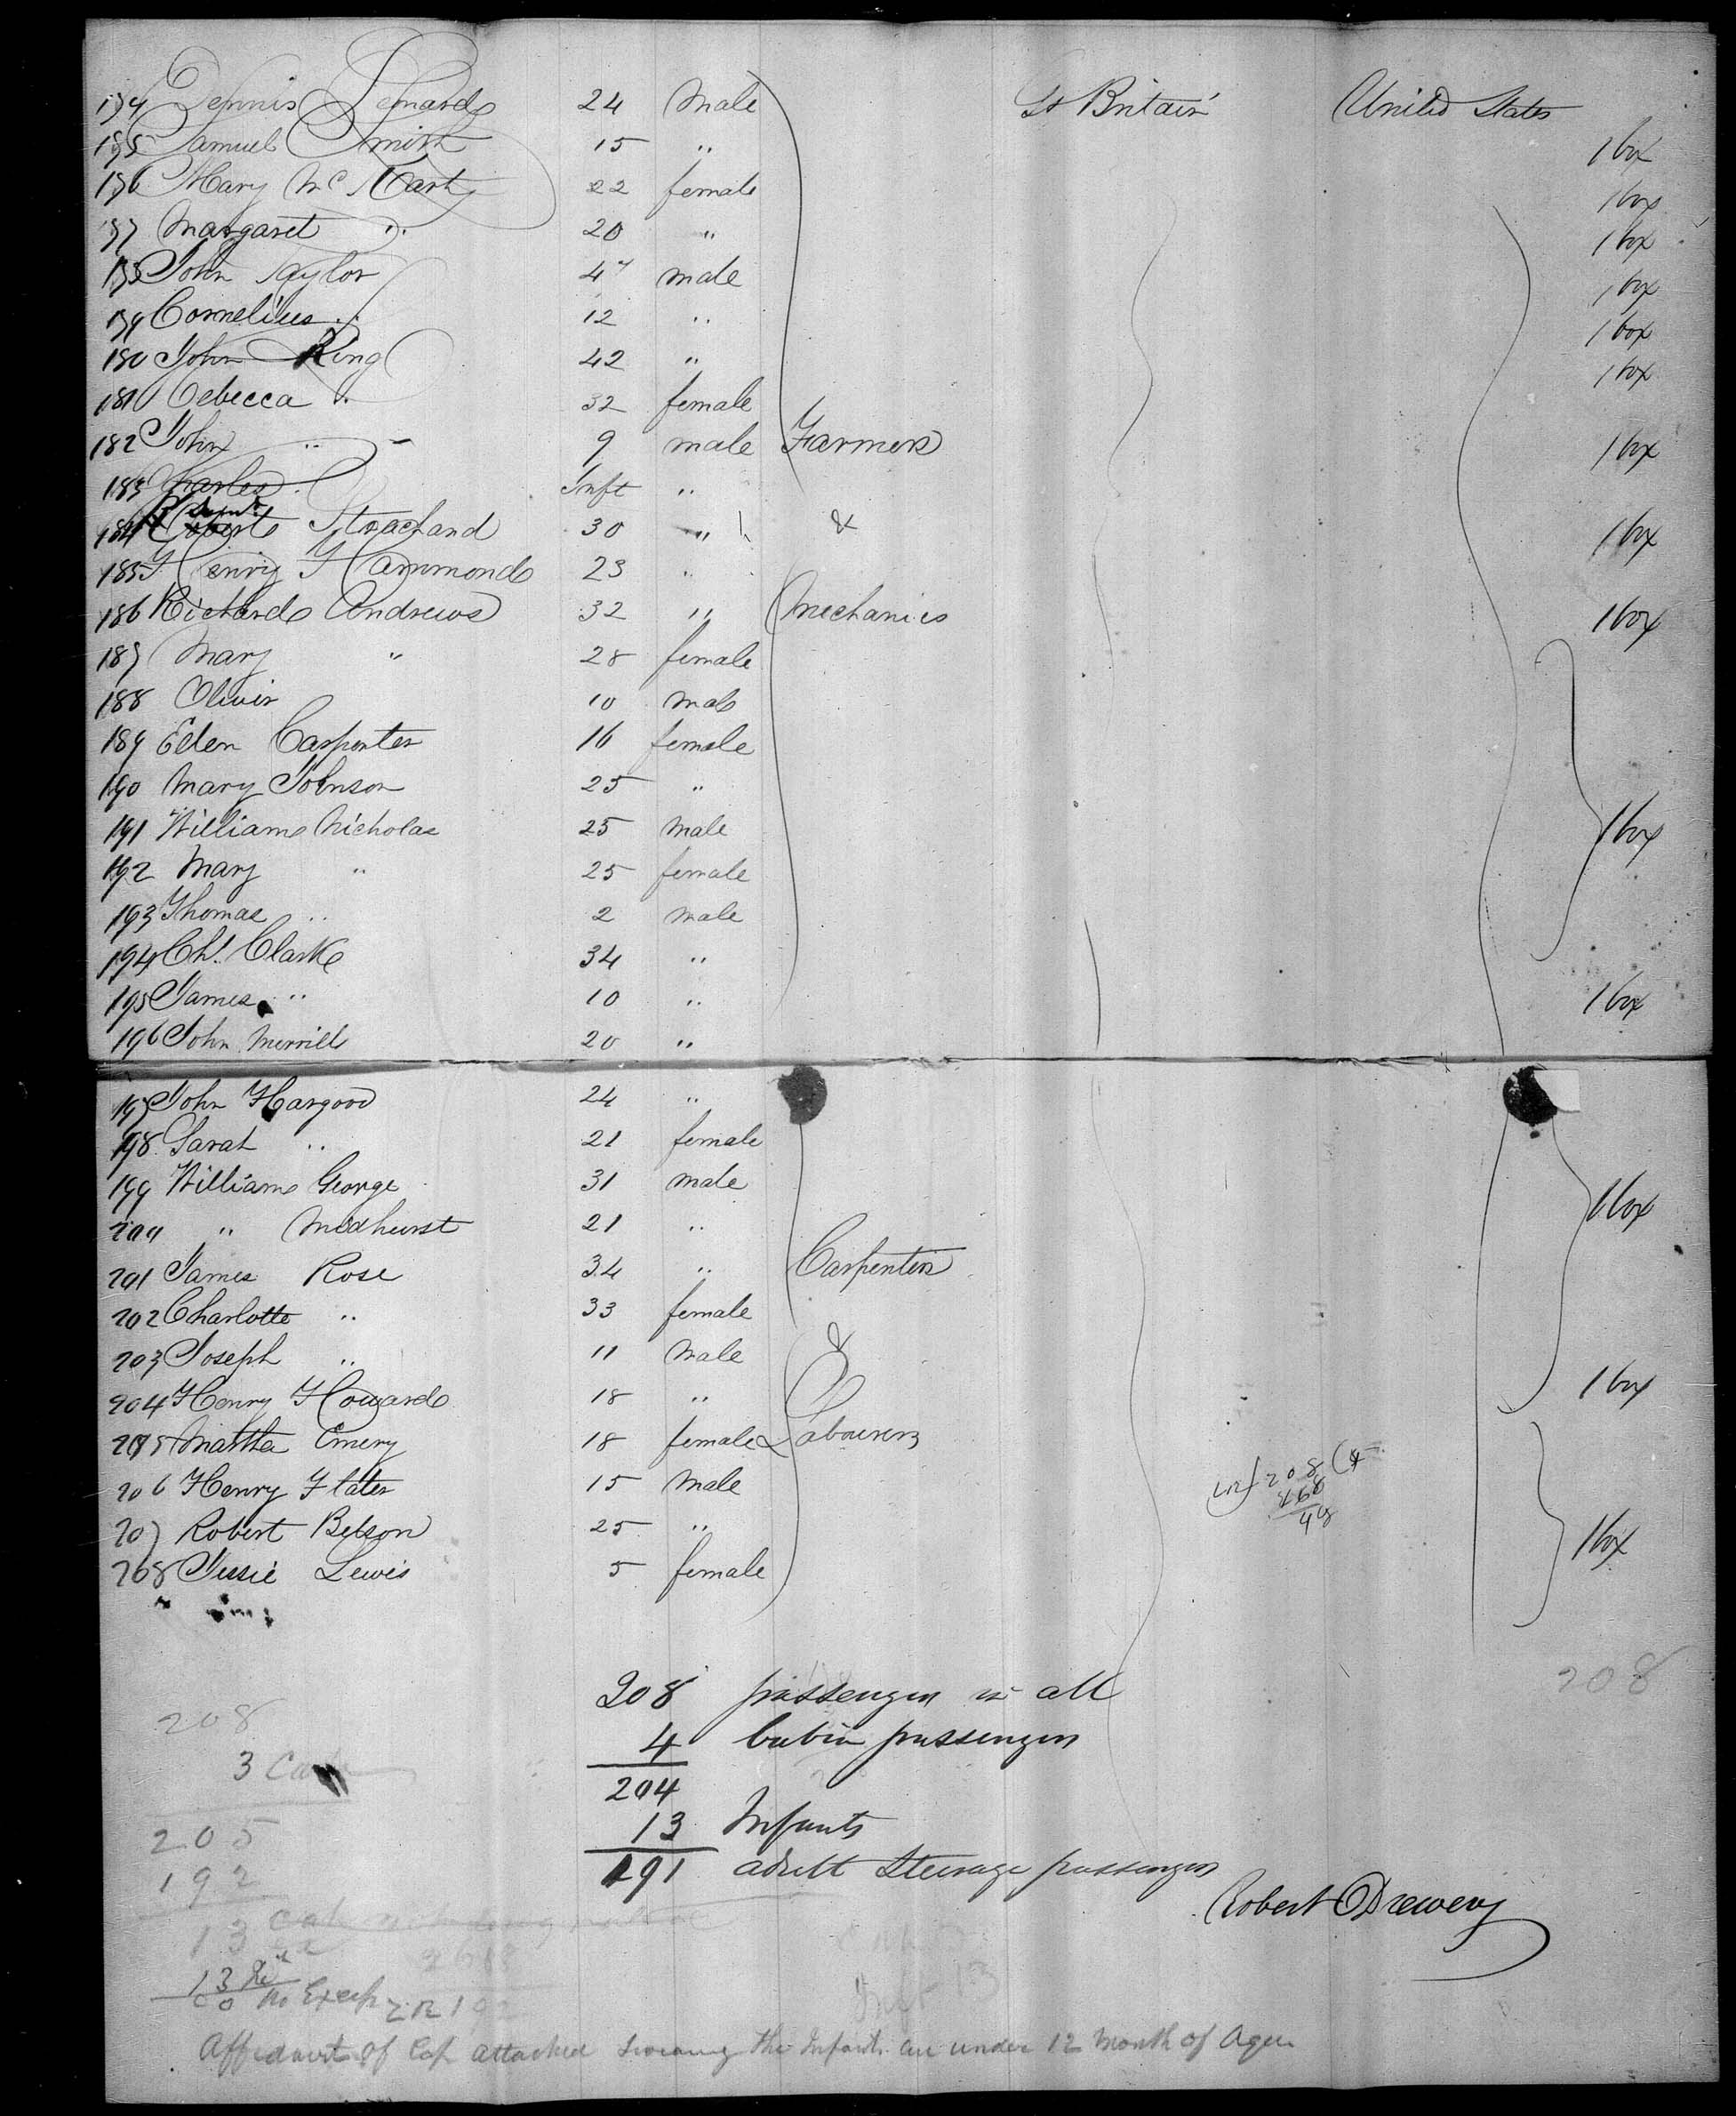 174 Dennis Lenard 24 male Gt Britain United States
175 Samuel Smith 15 " 1 box
176 Mary Mc Carty 22 female 1 box
177 Margaret " 20 " 1 box
178 John Taylor 47 male 1 box
179 Cornelius " 12 " 1 box
180 John King 42 " 1 box
181 Rebecca " 32 female
182 John " 9 male Farmers 1 box
183 Charles Inft "
184 Strachand 30 " & 1 box
185 Henry Hammond 23 "
186 Richard Andrews 32 " Mechanics 1 box
187 Mary " 28 female
188 Olivir 10 male
189 Eden Carpenter 16 female
190 Mary Johnson 25 "
191 William Nicholas 25 male 1 box
192 Mary " 25 female
193 Thomas " 2 male
194 Chs. Clark 34 "
195 James " 10 " 1 box
196 John Merrill 20 "
197 John Hargood 24 "
198 Sarah " 21 female
199 William George 31 male 1 box
200 " Medhurst 21 "
201 James Rose 34 " Carpenters
202 Charlotte " 33 female
203 Joseph " 11 male &
204 Henry Howard 18 " 1 box
205 Martha Emery 18 female Labourers
206 Henry Slater 15 male
207 Robert Belson 25 " 1 box
208 Jessie Lewis 5 female
208 passengers in all
208
208
4 Cabin passengers
3
204
13 Infants
205
191 adult Steerage passengers
192
Robert Drewery
13
Inft 13
13
no Excess
192
Affidavit of Cap attached swearing the Infants are under 12 Month of Age